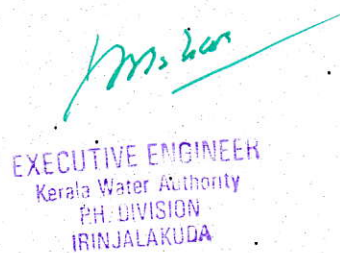 EXECUTIVE ENGINEER
Kerala Water Authority
P.H. DIVISION
IRINJALAKUDA